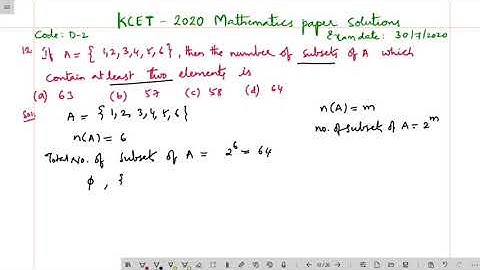 KCET - 2020 Mathematics paper solutions
Code: D-2
Exam date: 30/7/2020
12. If A = { 1,2,3,4,5,6}, then the number of subsets of A which
contain at least two elements is
(a) 63 (b) 57 (c) 58 (d) 64
Sol:
A = {1,2,3,4,5,6}
n(A) = 6
Total No. of subset of A = 2⁶ = 64
ϕ , {
n(A) = m
no. of subset of A = 2ᵐ